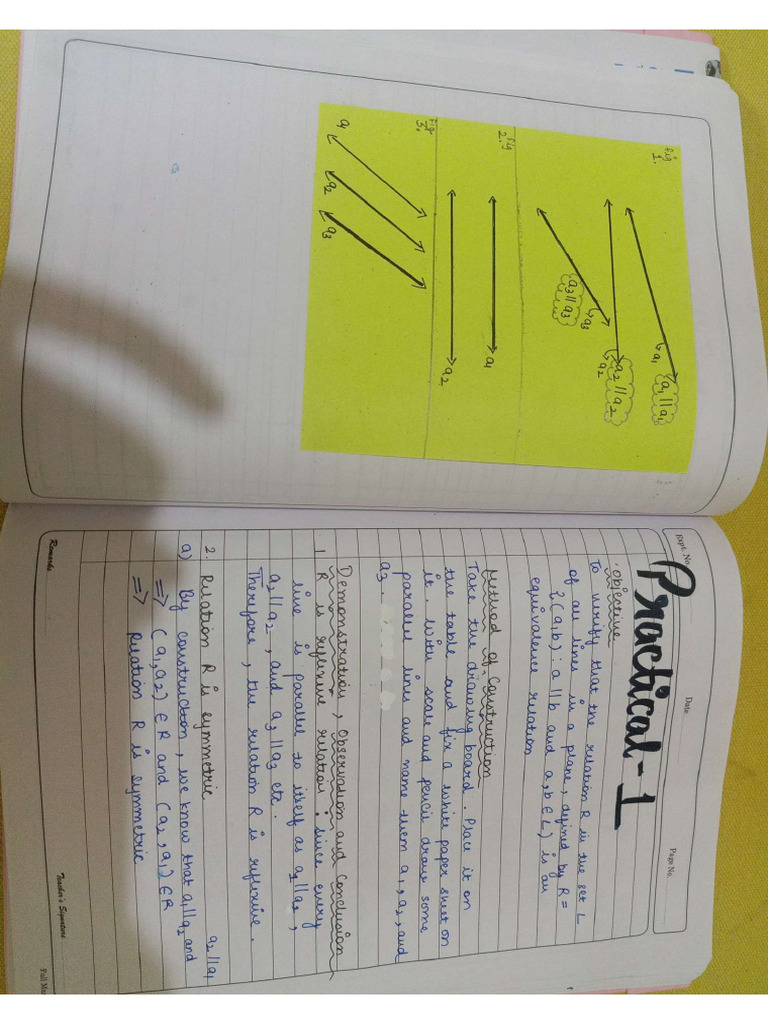 Fig
1.
a1
a1 || a1
a2 || a2
a2
a3
a3 || a3
Fig
2.
a1
a2
Fig
3.
a1
a2
a3
Expt. No.
Date
Page No.
Practical-1
Objective
To verify that the relation R in the set L
of all lines in a plane, defined by R =
{(a,b) : a || b and a, b ∈ L) is an
equivalence relation
Method of Construction
Take the drawing board. Place it on
the table and fix a white paper sheet on
it. With scale and pencil draw some
parallel lines and name them a1, a2, and
a3.
Demonstration, Observation and Conclusion
1 R is reflexive relation : since every
line is parallel to itself as a2 || a2,
a2 || a2, and a3 || a3 etc.
Therefore, the relation R is reflexive.
2. Relation R is symmetric
a2 || a1
a) By construction, we know that a1 || a2 and
=> (a1, a2) ∈ R and (a2, a1) ∈ R
=> Relation R is symmetric
Remarks
Teacher's Signature
Full Ma